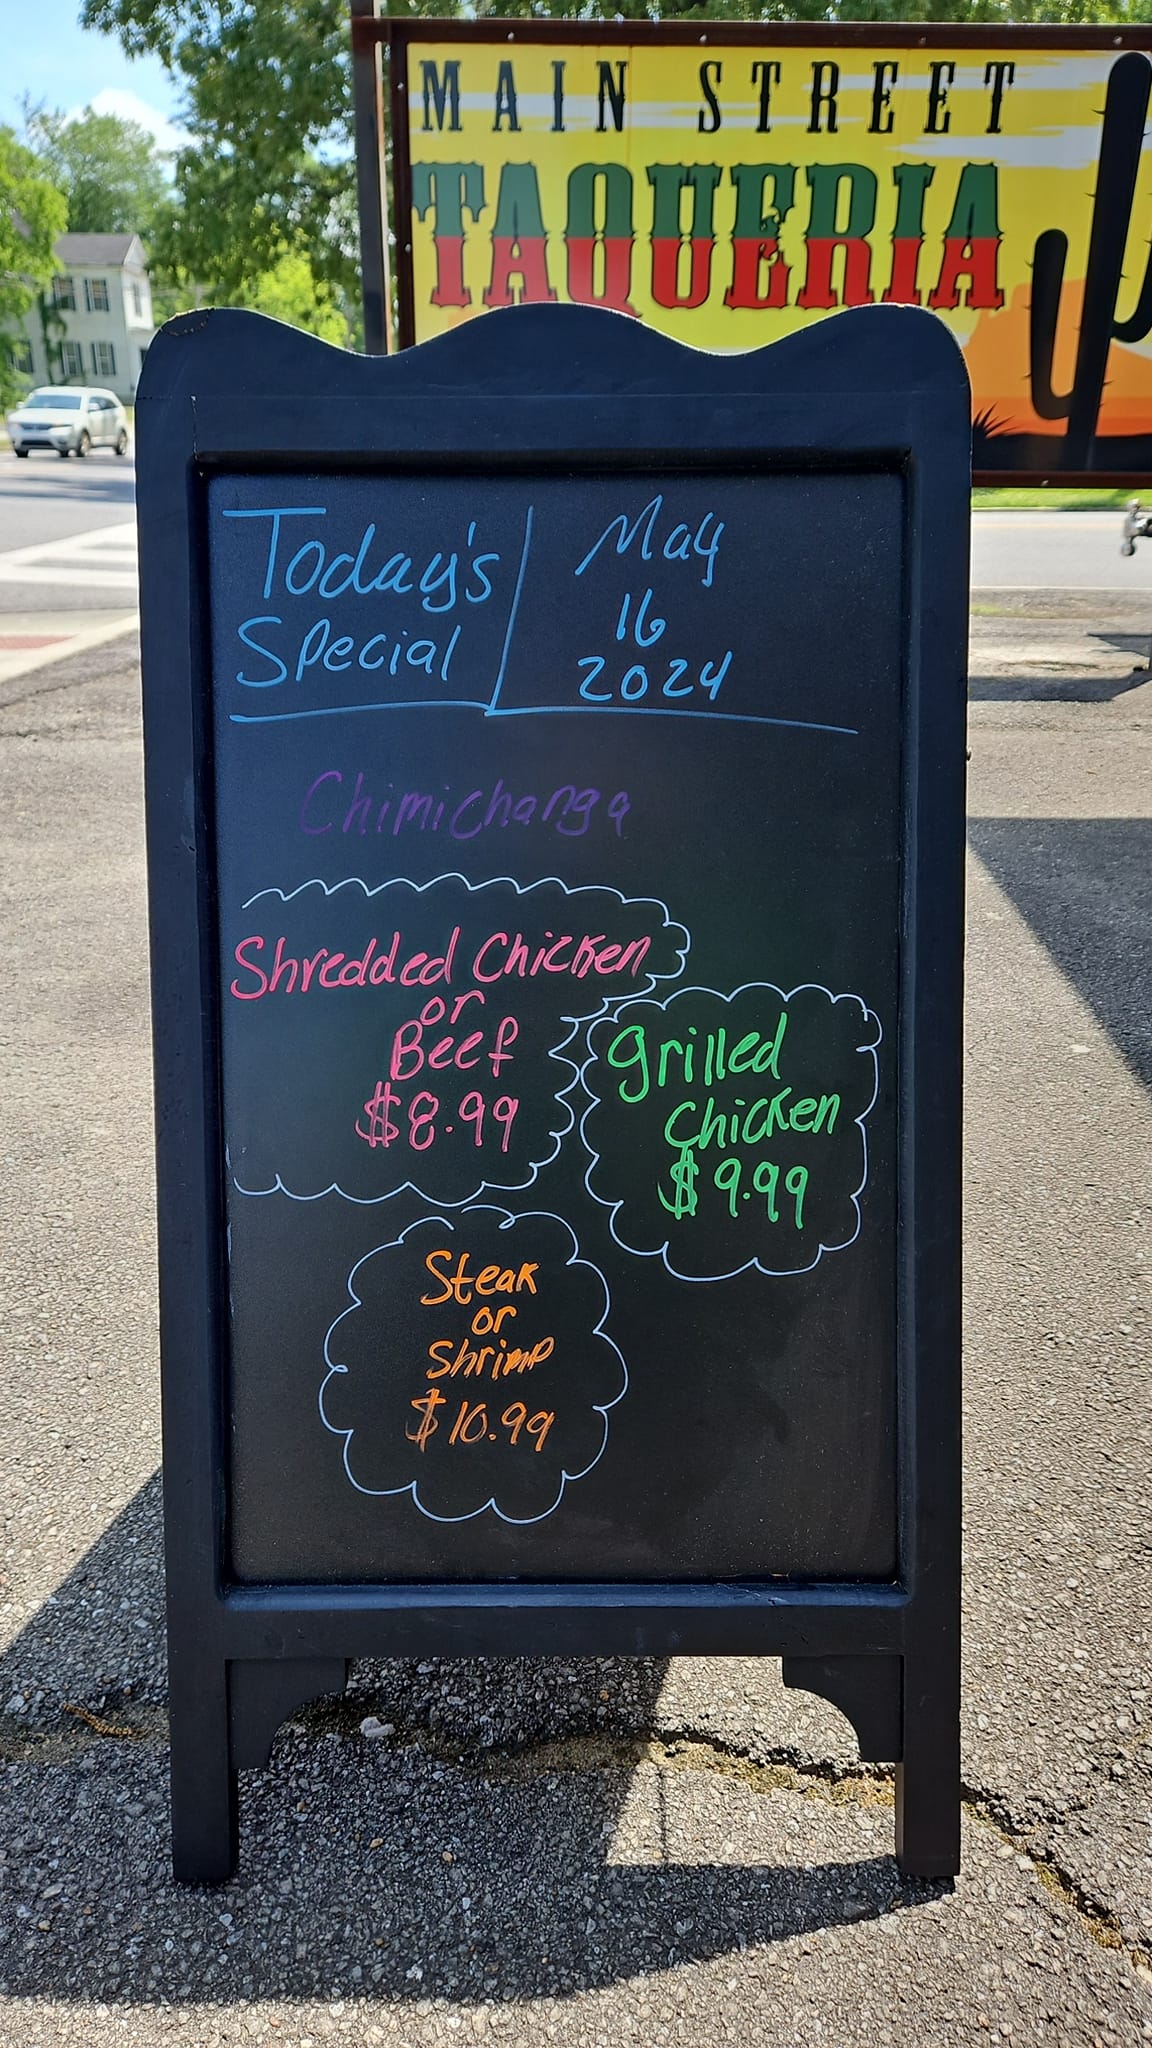 MAIN STREET
TAQUERIA
Today's
Special
May
16
2024
Chimichanga
Shredded Chicken
or
Beef
$8.99
Grilled
Chicken
$9.99
Steak
or
Shrimp
$10.99